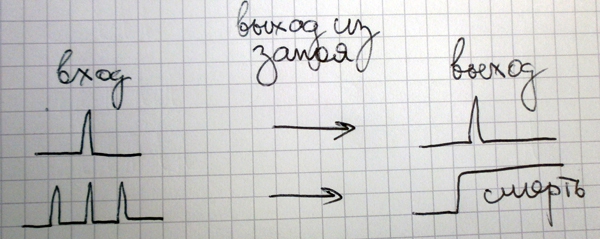 выход из
запоя
вход
выход
смерть